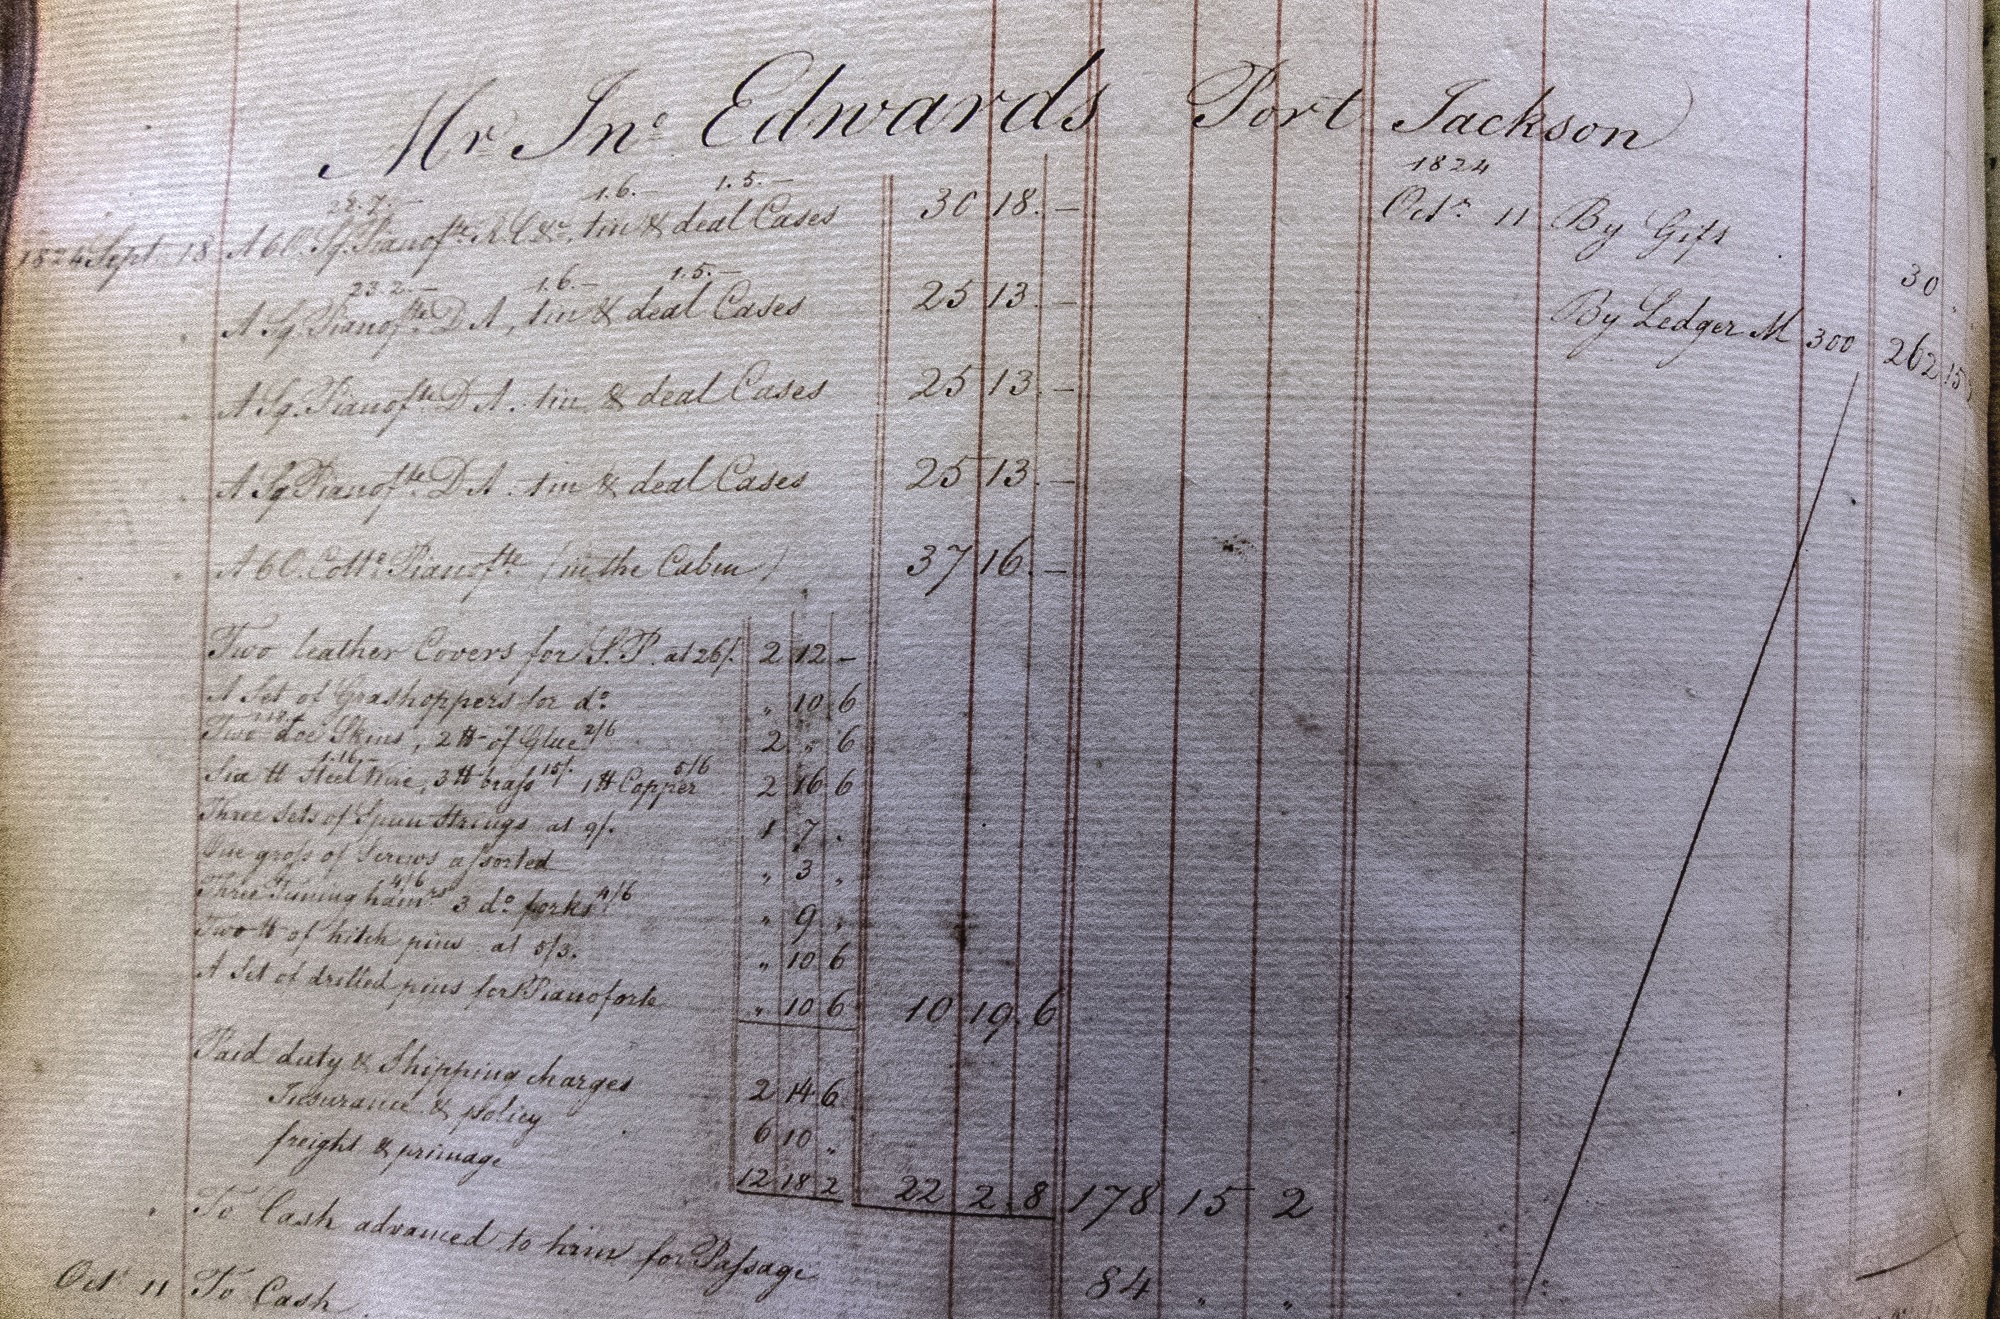 Mr Jno Edwards Port Jackson
28.7.- 1.6.- 1.5.-
1824 Sept. 18 A 6 O. Sq. Pianofte R.C &c, tin & deal Cases 30 18. -
23 2.- 1.6.- 1.5.-
A Sq. Pianofte D A, tin & deal Cases 25 13. -
A Sq. Pianofte D A. tin & deal Cases 25 13. -
A Sq Pianofte D A. tin & deal Cases 25 13. -
A 6 O. Cotte Pianofte (in the Cabin) 37 16. -
Two leather Covers for S. P. at 26/. 2 12 -
A Set of Grashoppers for do. " 10 6
Two doe Skins, 2 ℔ of Glue 2/6 2 " 6
Six ℔ Steel Wire, 3 ℔ brass 15/. 1 ℔ Copper 5/6 2 16 6
Three Sets of Spun Strings at 9/. 1 7 "
One gross of Screws assorted " 3 "
Three Tuning hamrs 4/6 3 do forks 4/6 " 9 "
Two ℔ of hitch pins at 5/3. " 10 6
A Set of drilled pins for Pianoforte " 10 6 10 19. 6
Paid duty & Shipping charges 2 14 6
Insurance & policy 6 10 "
freight & primage 12 18 2 22 2. 8 178 15 2
To Cash advanced to him for Passage 84 " "
Oct 11 To Cash
1824
Octr 11 By Gift 30
By Ledger M 300 262 15